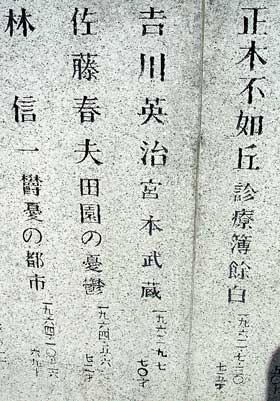 正木不如丘 診療簿餘白 一九六二・七・三〇 七五才
吉川英治 宮本武蔵 一九六二・九・七 七〇才
佐藤春夫 田園の憂鬱 一九六四・五・六 七二才
林信一 鬱憂の都市